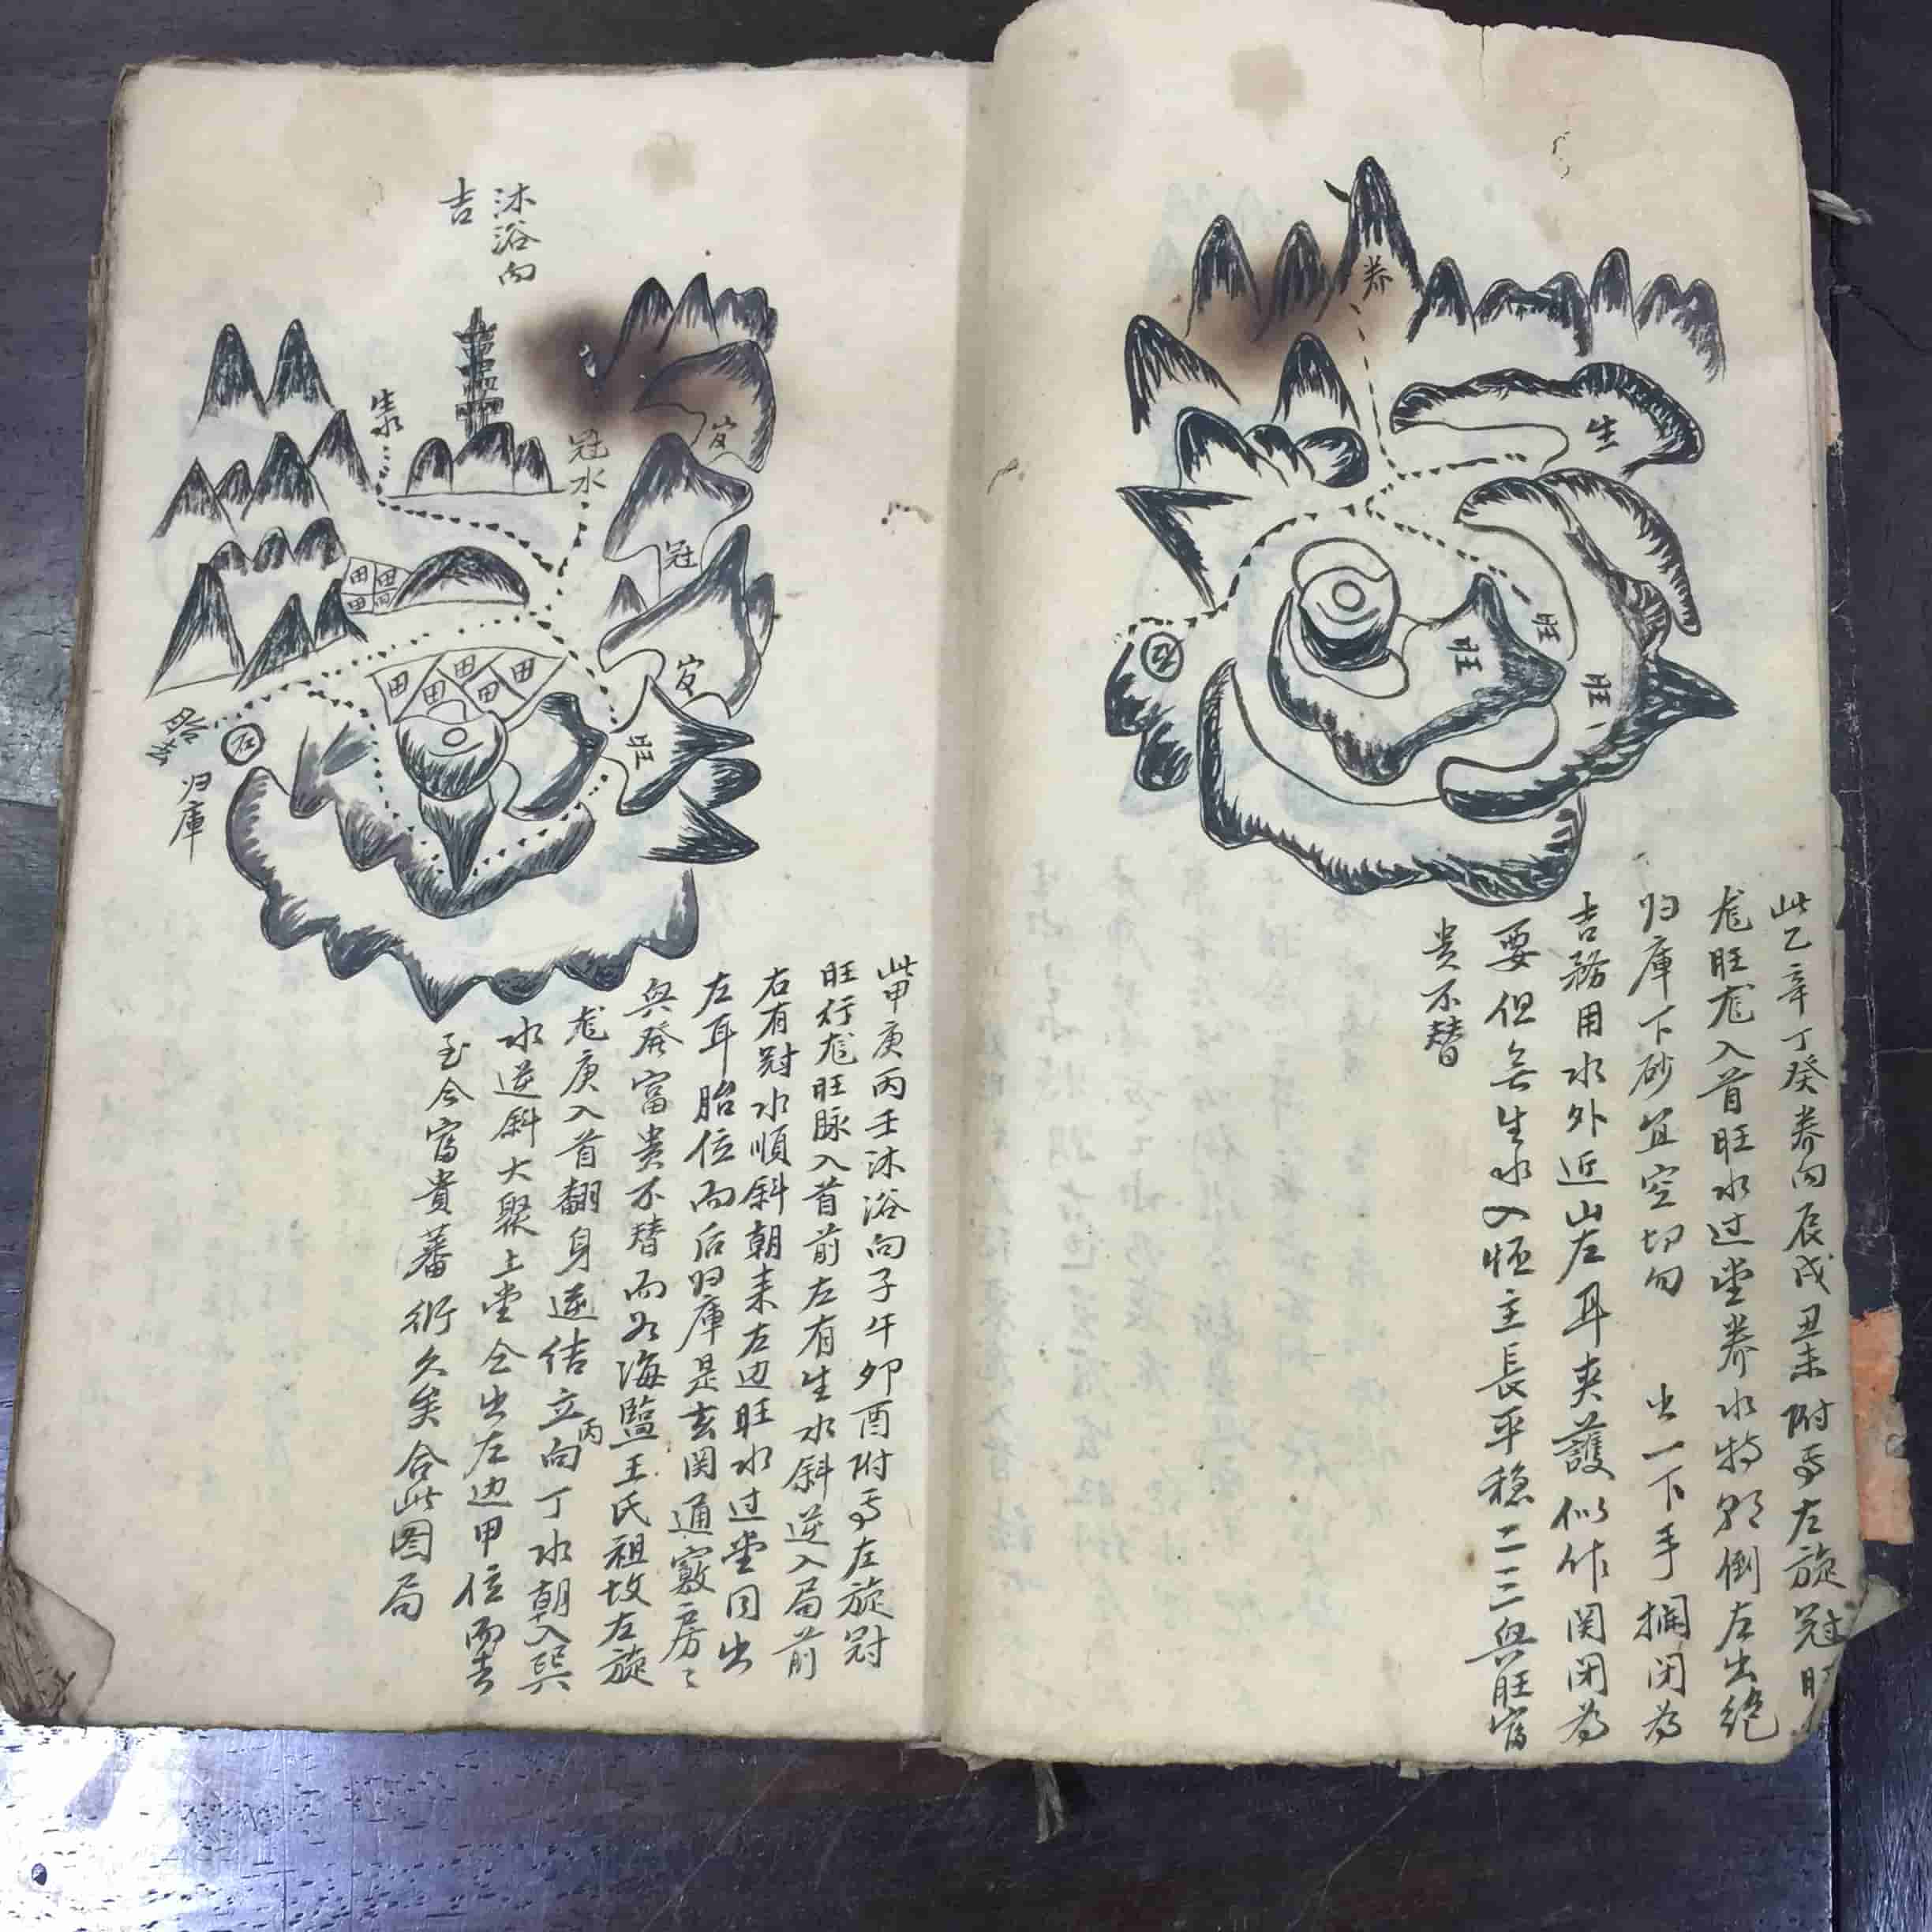 养
生
旺
旺
旺
此乙辛丁癸养向辰戌丑未附焉左旋冠旺
龙旺龙入首旺水过堂养水特朝倒左出绝
归庫下砂宜空切勿 出一下手攔闭为
吉務用水外近山左耳夹護似作関闭为
要但无生水入恒主長平稳二三與旺富
贵不替
沐浴向
吉
生水
冠水
官
冠
官
旺
田田
田田
田田田田田
胎
归庫
此甲庚丙壬沐浴向子午卯酉附焉左旋冠
旺行龙旺脉入首前左有生水斜逆入局前
右有冠水順斜朝来左边旺水过堂同出
左耳胎位而后归庫是玄関通竅房〻
與發富贵不替而如海監王氏祖坟左旋
龙庚入首翻身逆结立丙向丁水朝入巽
水逆斜大聚上堂仝出左边甲位而去
至今富貴蕃衍久矣合此图局